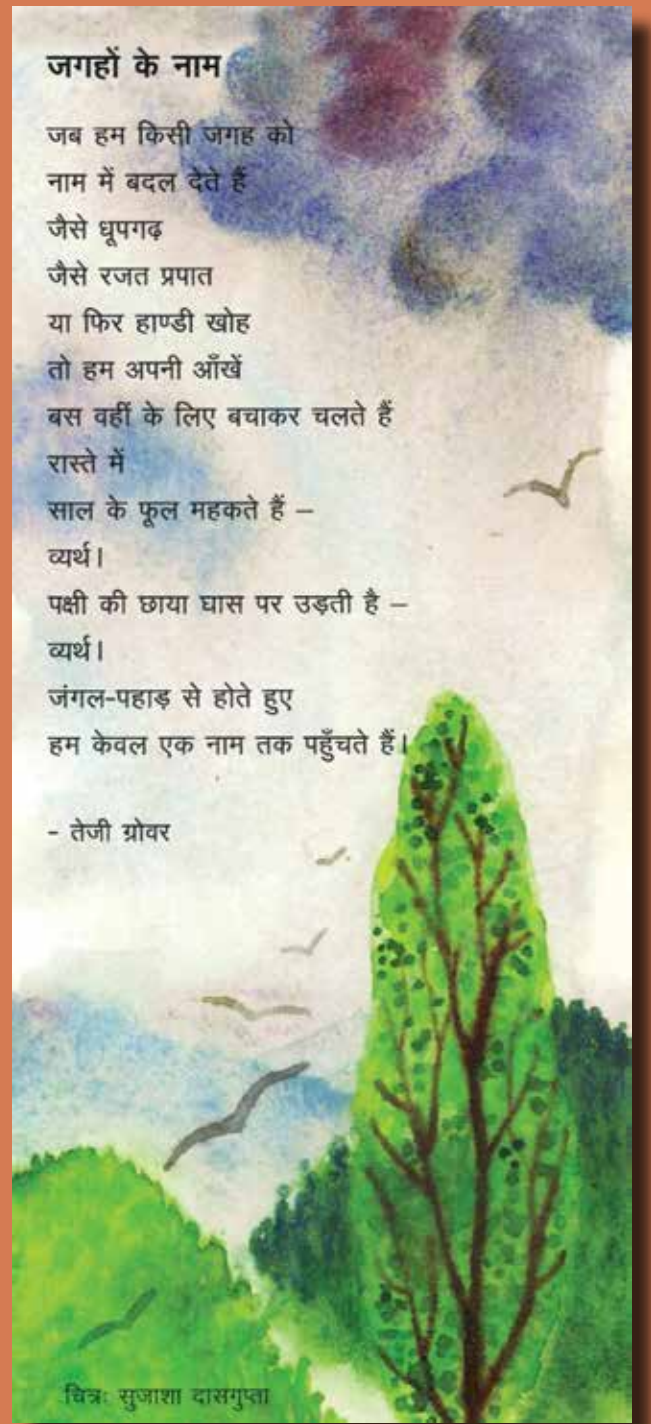 जगहों के नाम
जब हम किसी जगह को
नाम में बदल देते हैं
जैसे धूपगढ़
जैसे रजत प्रपात
या फिर हाण्डी खोह
तो हम अपनी आँखें
बस वहीं के लिए बचाकर चलते हैं
रास्ते में
साल के फूल महकते हैं –
व्यर्थ।
पक्षी की छाया घास पर उड़ती है –
व्यर्थ।
जंगल-पहाड़ से होते हुए
हम केवल एक नाम तक पहुँचते हैं।
- तेजी ग्रोवर
चित्र: सुजाशा दासगुप्ता